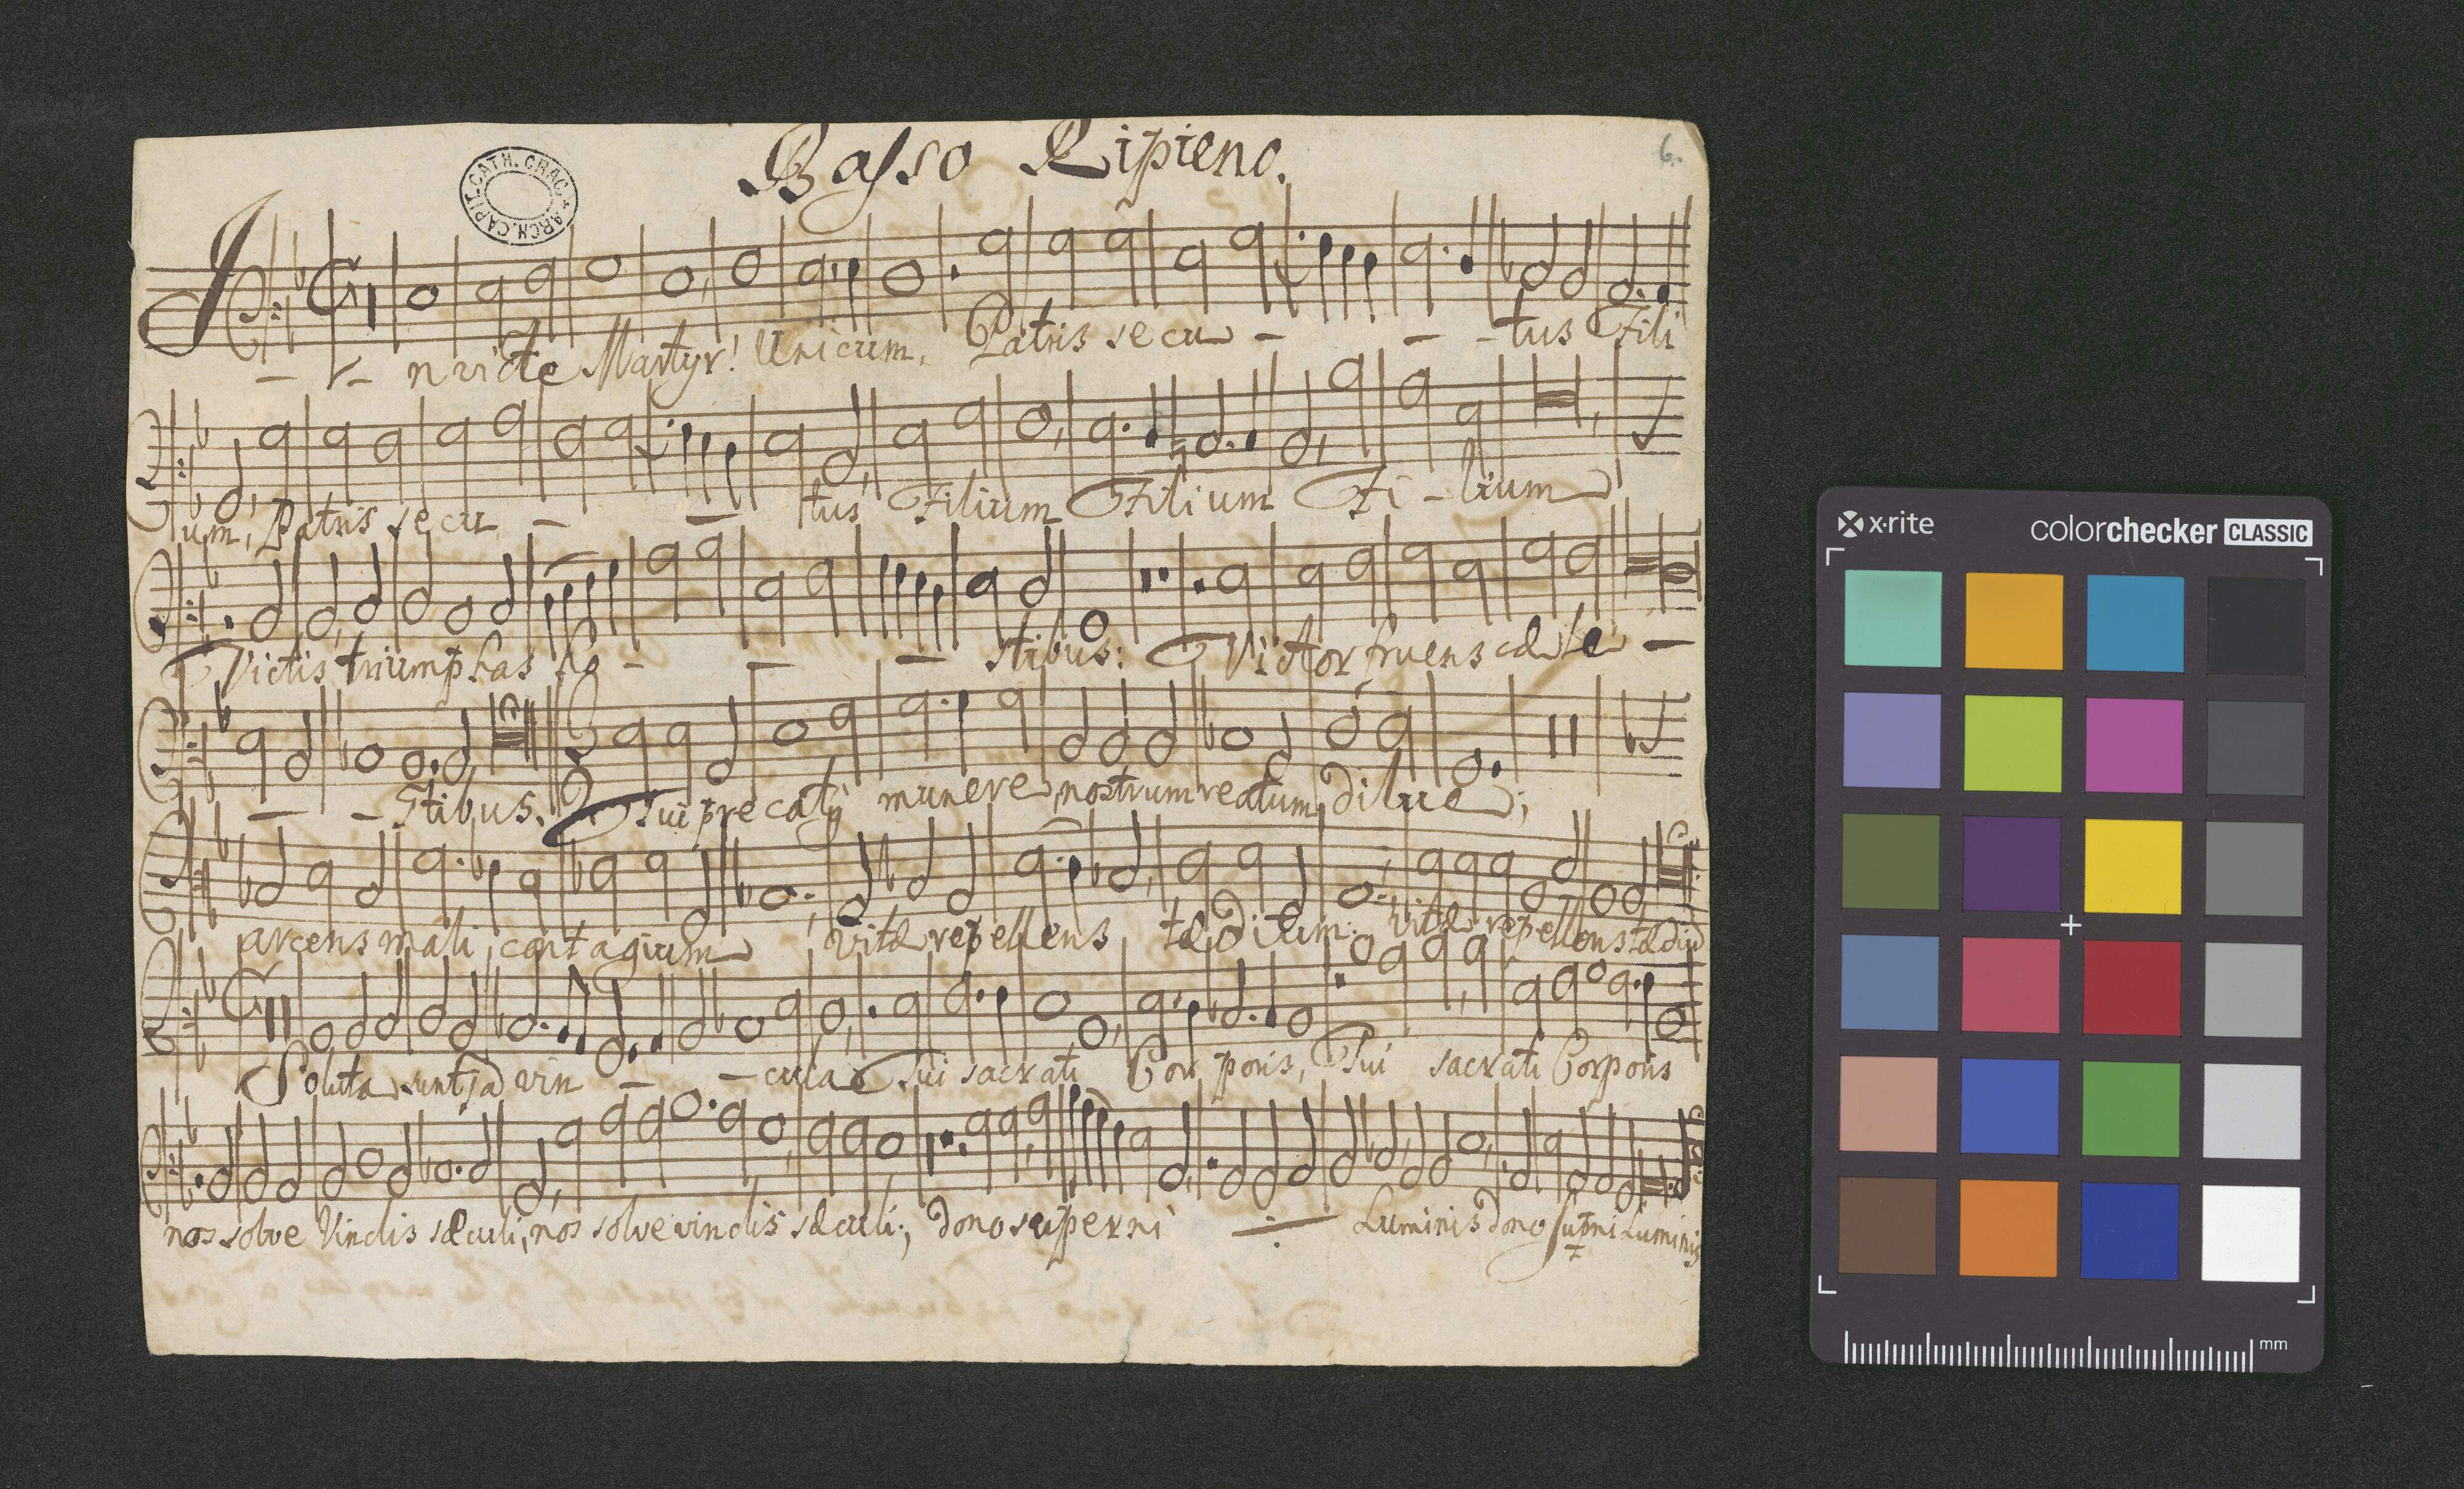 Basso Ripieno.
6.
CAPIT. CATH. CRAC. * ARCH.
I - - nvicte Martyr! Unicum, Patris secu - - - tus Fili
um, Patris secu - - tus Filium Filium Fi - lium
Victis triumphas ho - - - stibus: Victor fruens cæle -
- - stibus. Tui precatꝰ munere nostrum reatum dilue;
arcens mali contagium vitæ repellens tædium. vitæ repellens tædiū
Soluta sunt ja vin - - cula Tui sacrati Corporis, Tui sacrati Corporis
nos solve Vinclis sæculi, nos solve vinclis sæculi; dono superni ∻ Luminis dono suꝑni Luminis
x·rite
colorchecker CLASSIC
mm